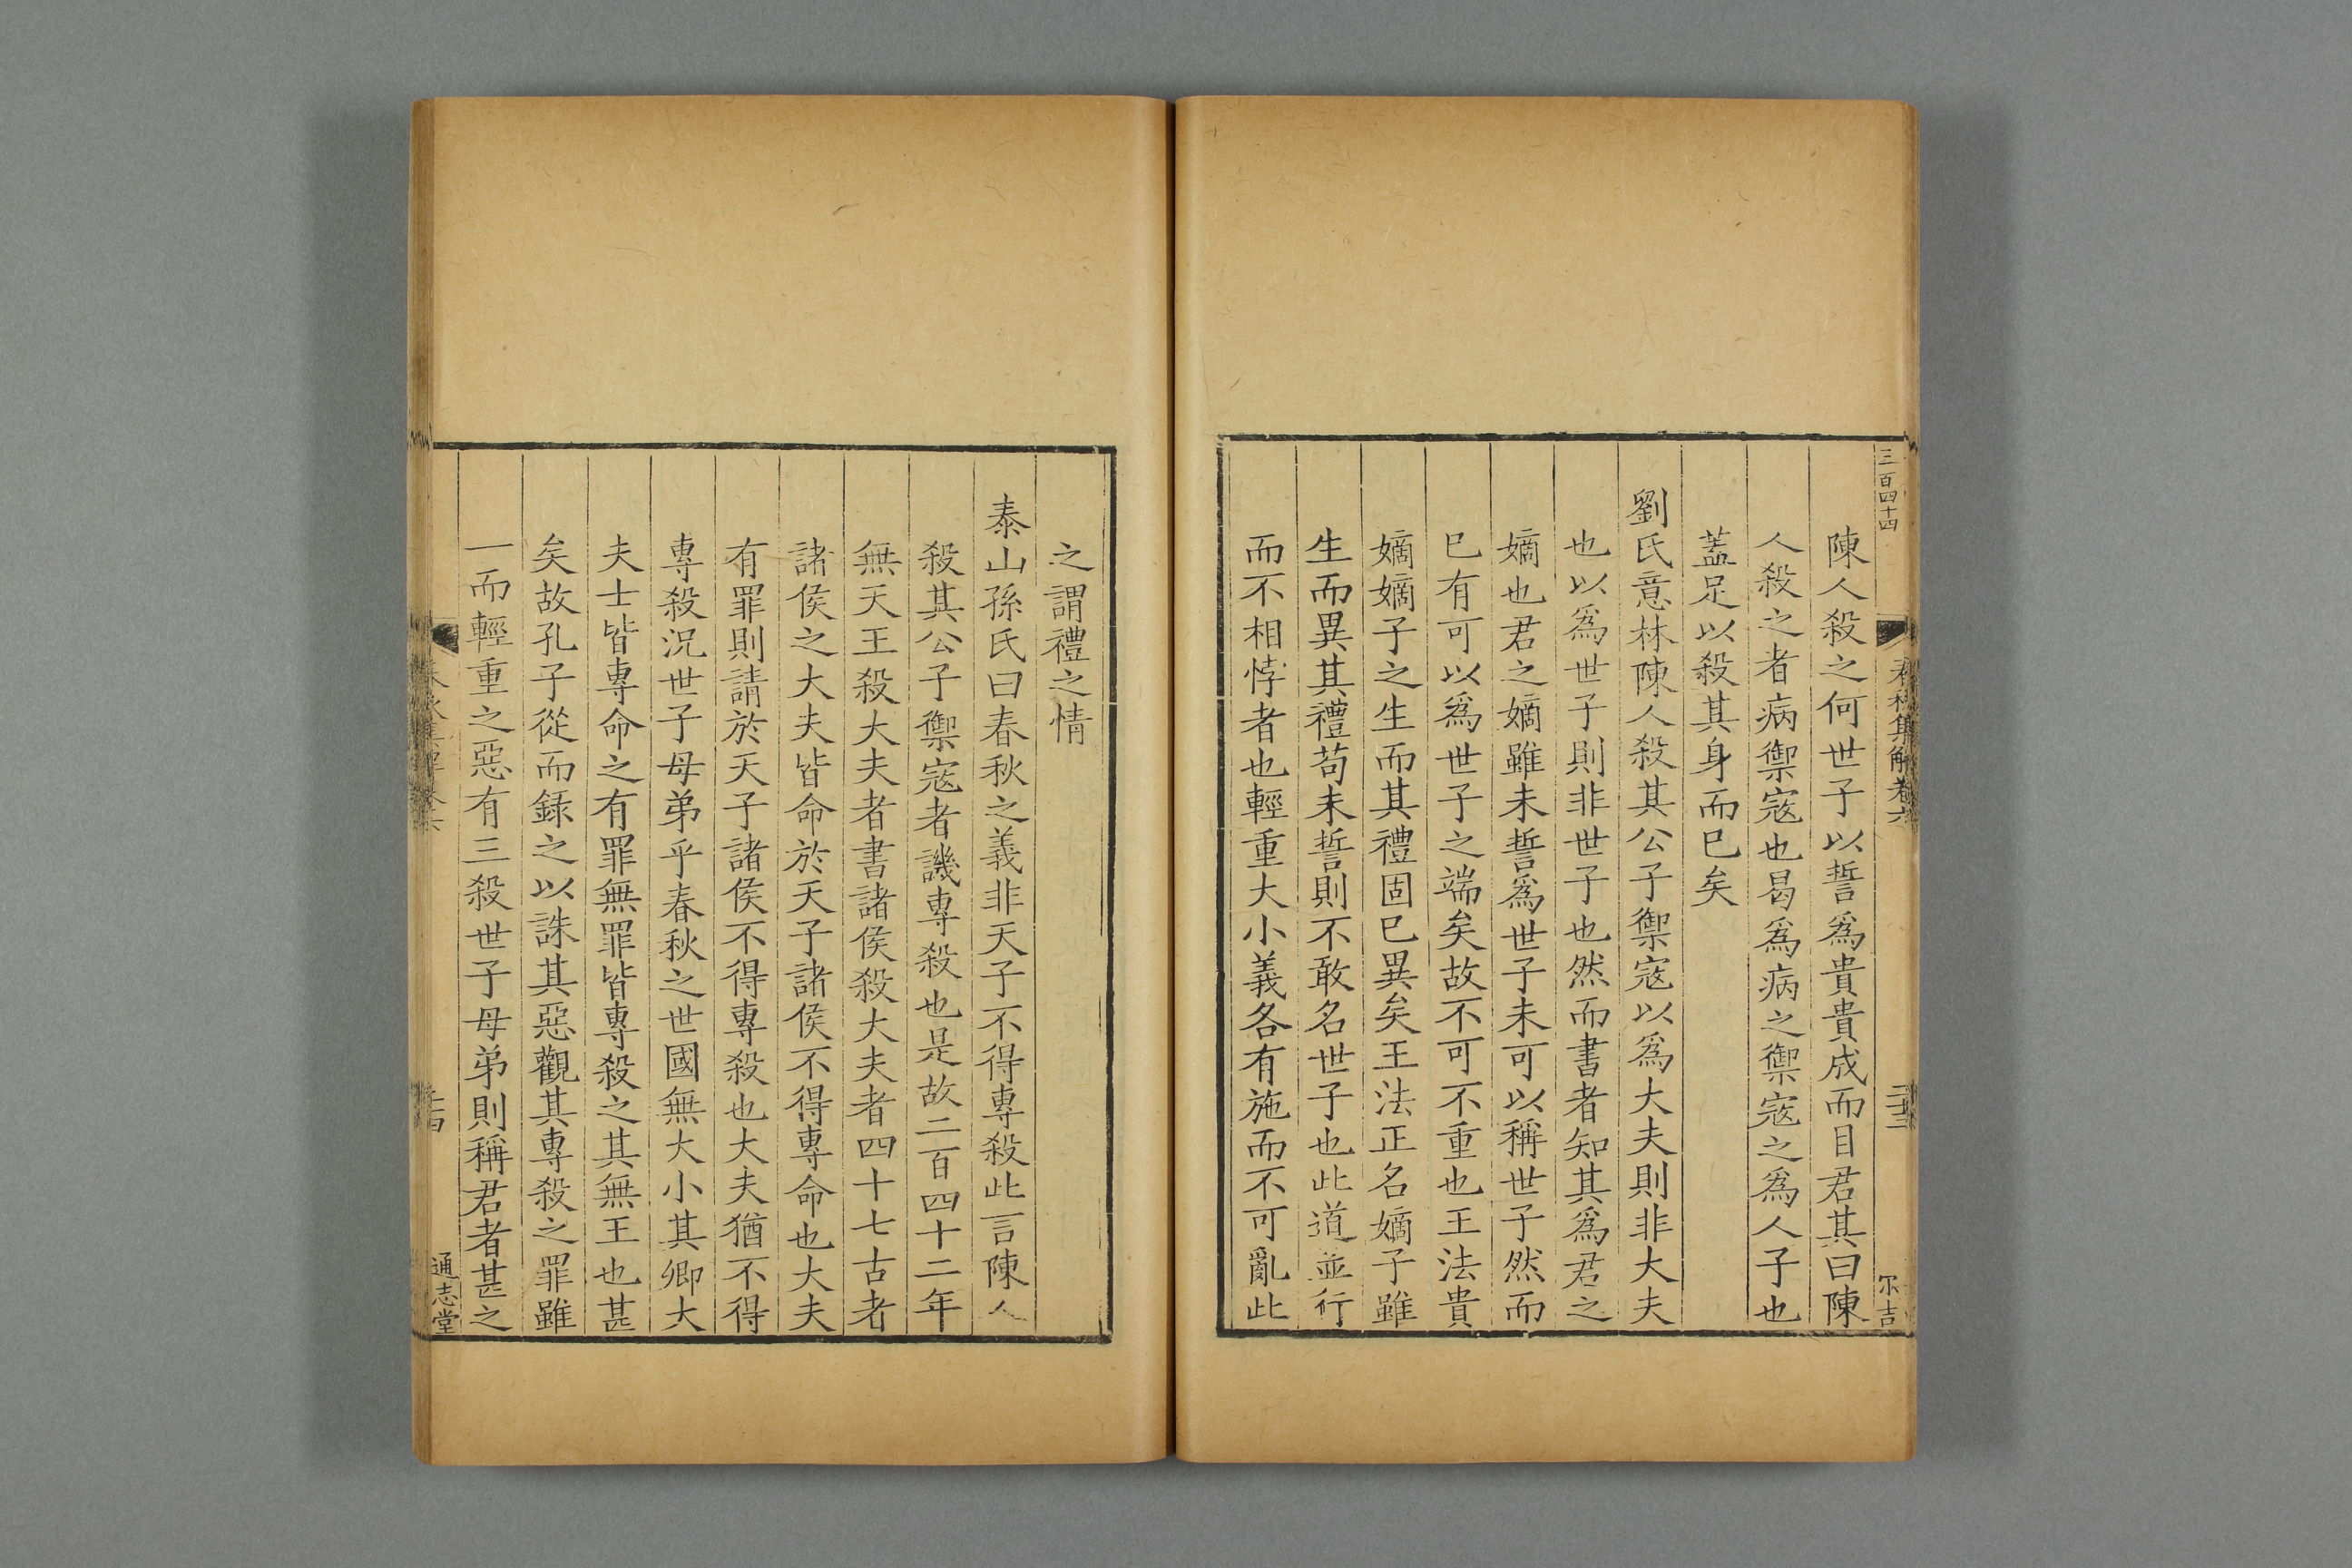 三百四十四
春秋集解卷六
二十三
尔吉
陳人殺之何世子以誓爲貴貴成而目君其曰陳
人殺之者病禦寇也曷爲病之禦寇之爲人子也
蓋足以殺其身而巳矣
劉氏意林陳人殺其公子禦寇以爲大夫則非大夫
也以爲世子則非世子也然而書者知其爲君之
嫡也君之嫡雖未誓爲世子未可以稱世子然而
巳有可以爲世子之端矣故不可不重也王法貴
嫡嫡子之生而其禮固巳異矣王法正名嫡子雖
生而異其禮苟未誓則不敢名世子也此道並行
而不相悖者也輕重大小義各有施而不可亂此
之謂禮之情
泰山孫氏曰春秋之義非天子不得專殺此言陳人
殺其公子禦寇者譏專殺也是故二百四十二年
無天王殺大夫者書諸侯殺大夫者四十七古者
諸侯之大夫皆命於天子諸侯不得專命也大夫
有罪則請於天子諸侯不得專殺也大夫猶不得
專殺況世子母弟乎春秋之世國無大小其卿大
夫士皆專命之有罪無罪皆專殺之其無王也甚
矣故孔子從而錄之以誅其惡觀其專殺之罪雖
一而輕重之惡有三殺世子母弟則稱君者甚之
通志堂